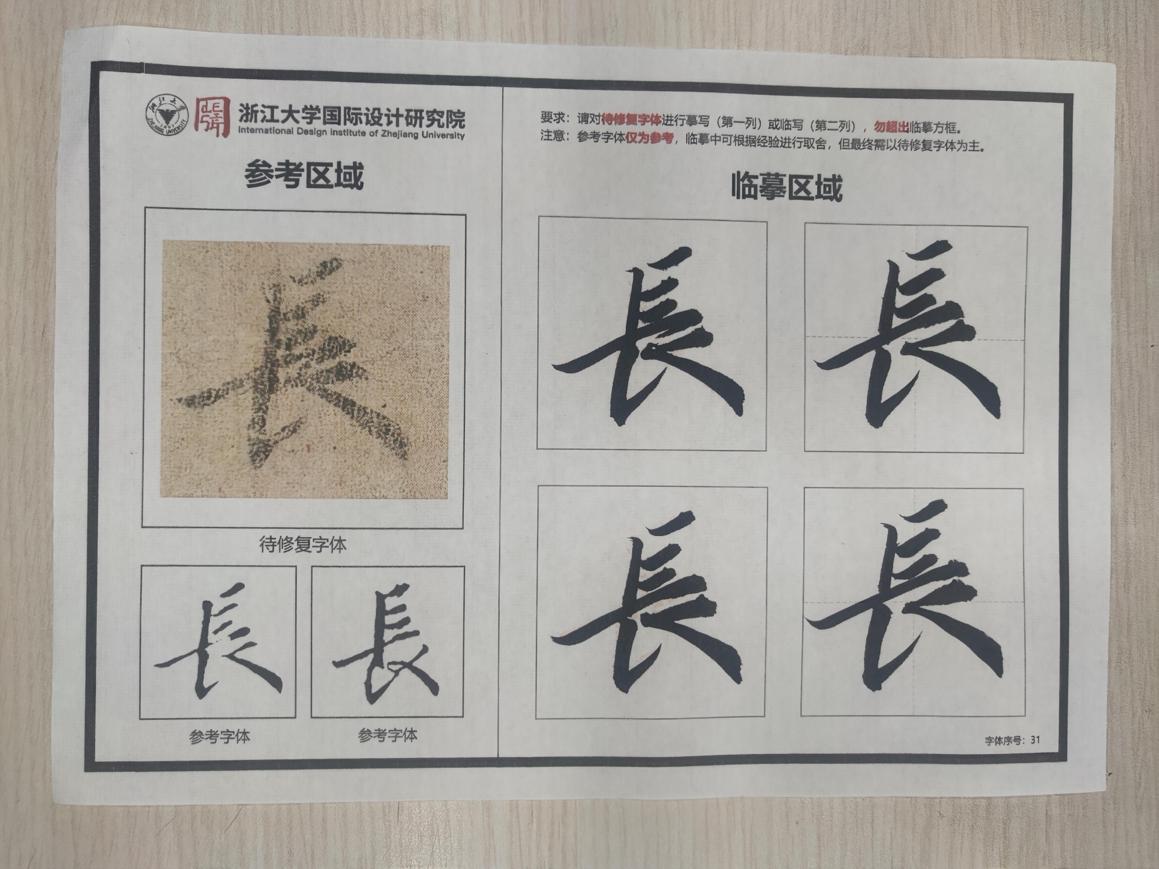 浙江大学国际设计研究院
International Design Institute of Zhejiang University
参考区域
長
待修复字体
長
長
参考字体
参考字体
要求：请对待修复字体进行摹写（第一列）或临写（第二列），勿超出临摹方框。
注意：参考字体仅为参考，临摹中可根据经验进行取舍，但最终需以待修复字体为主。
临摹区域
長
長
長
長
字体序号：31